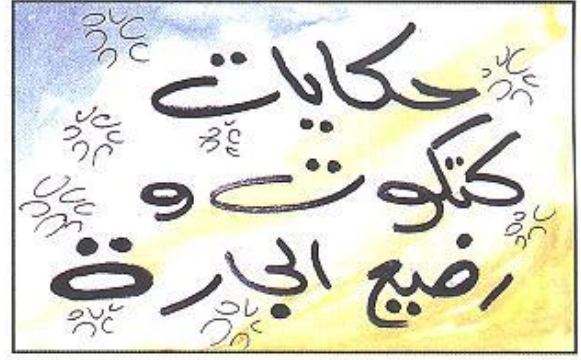 حكايات
كتكوت و
رضيع الجارة